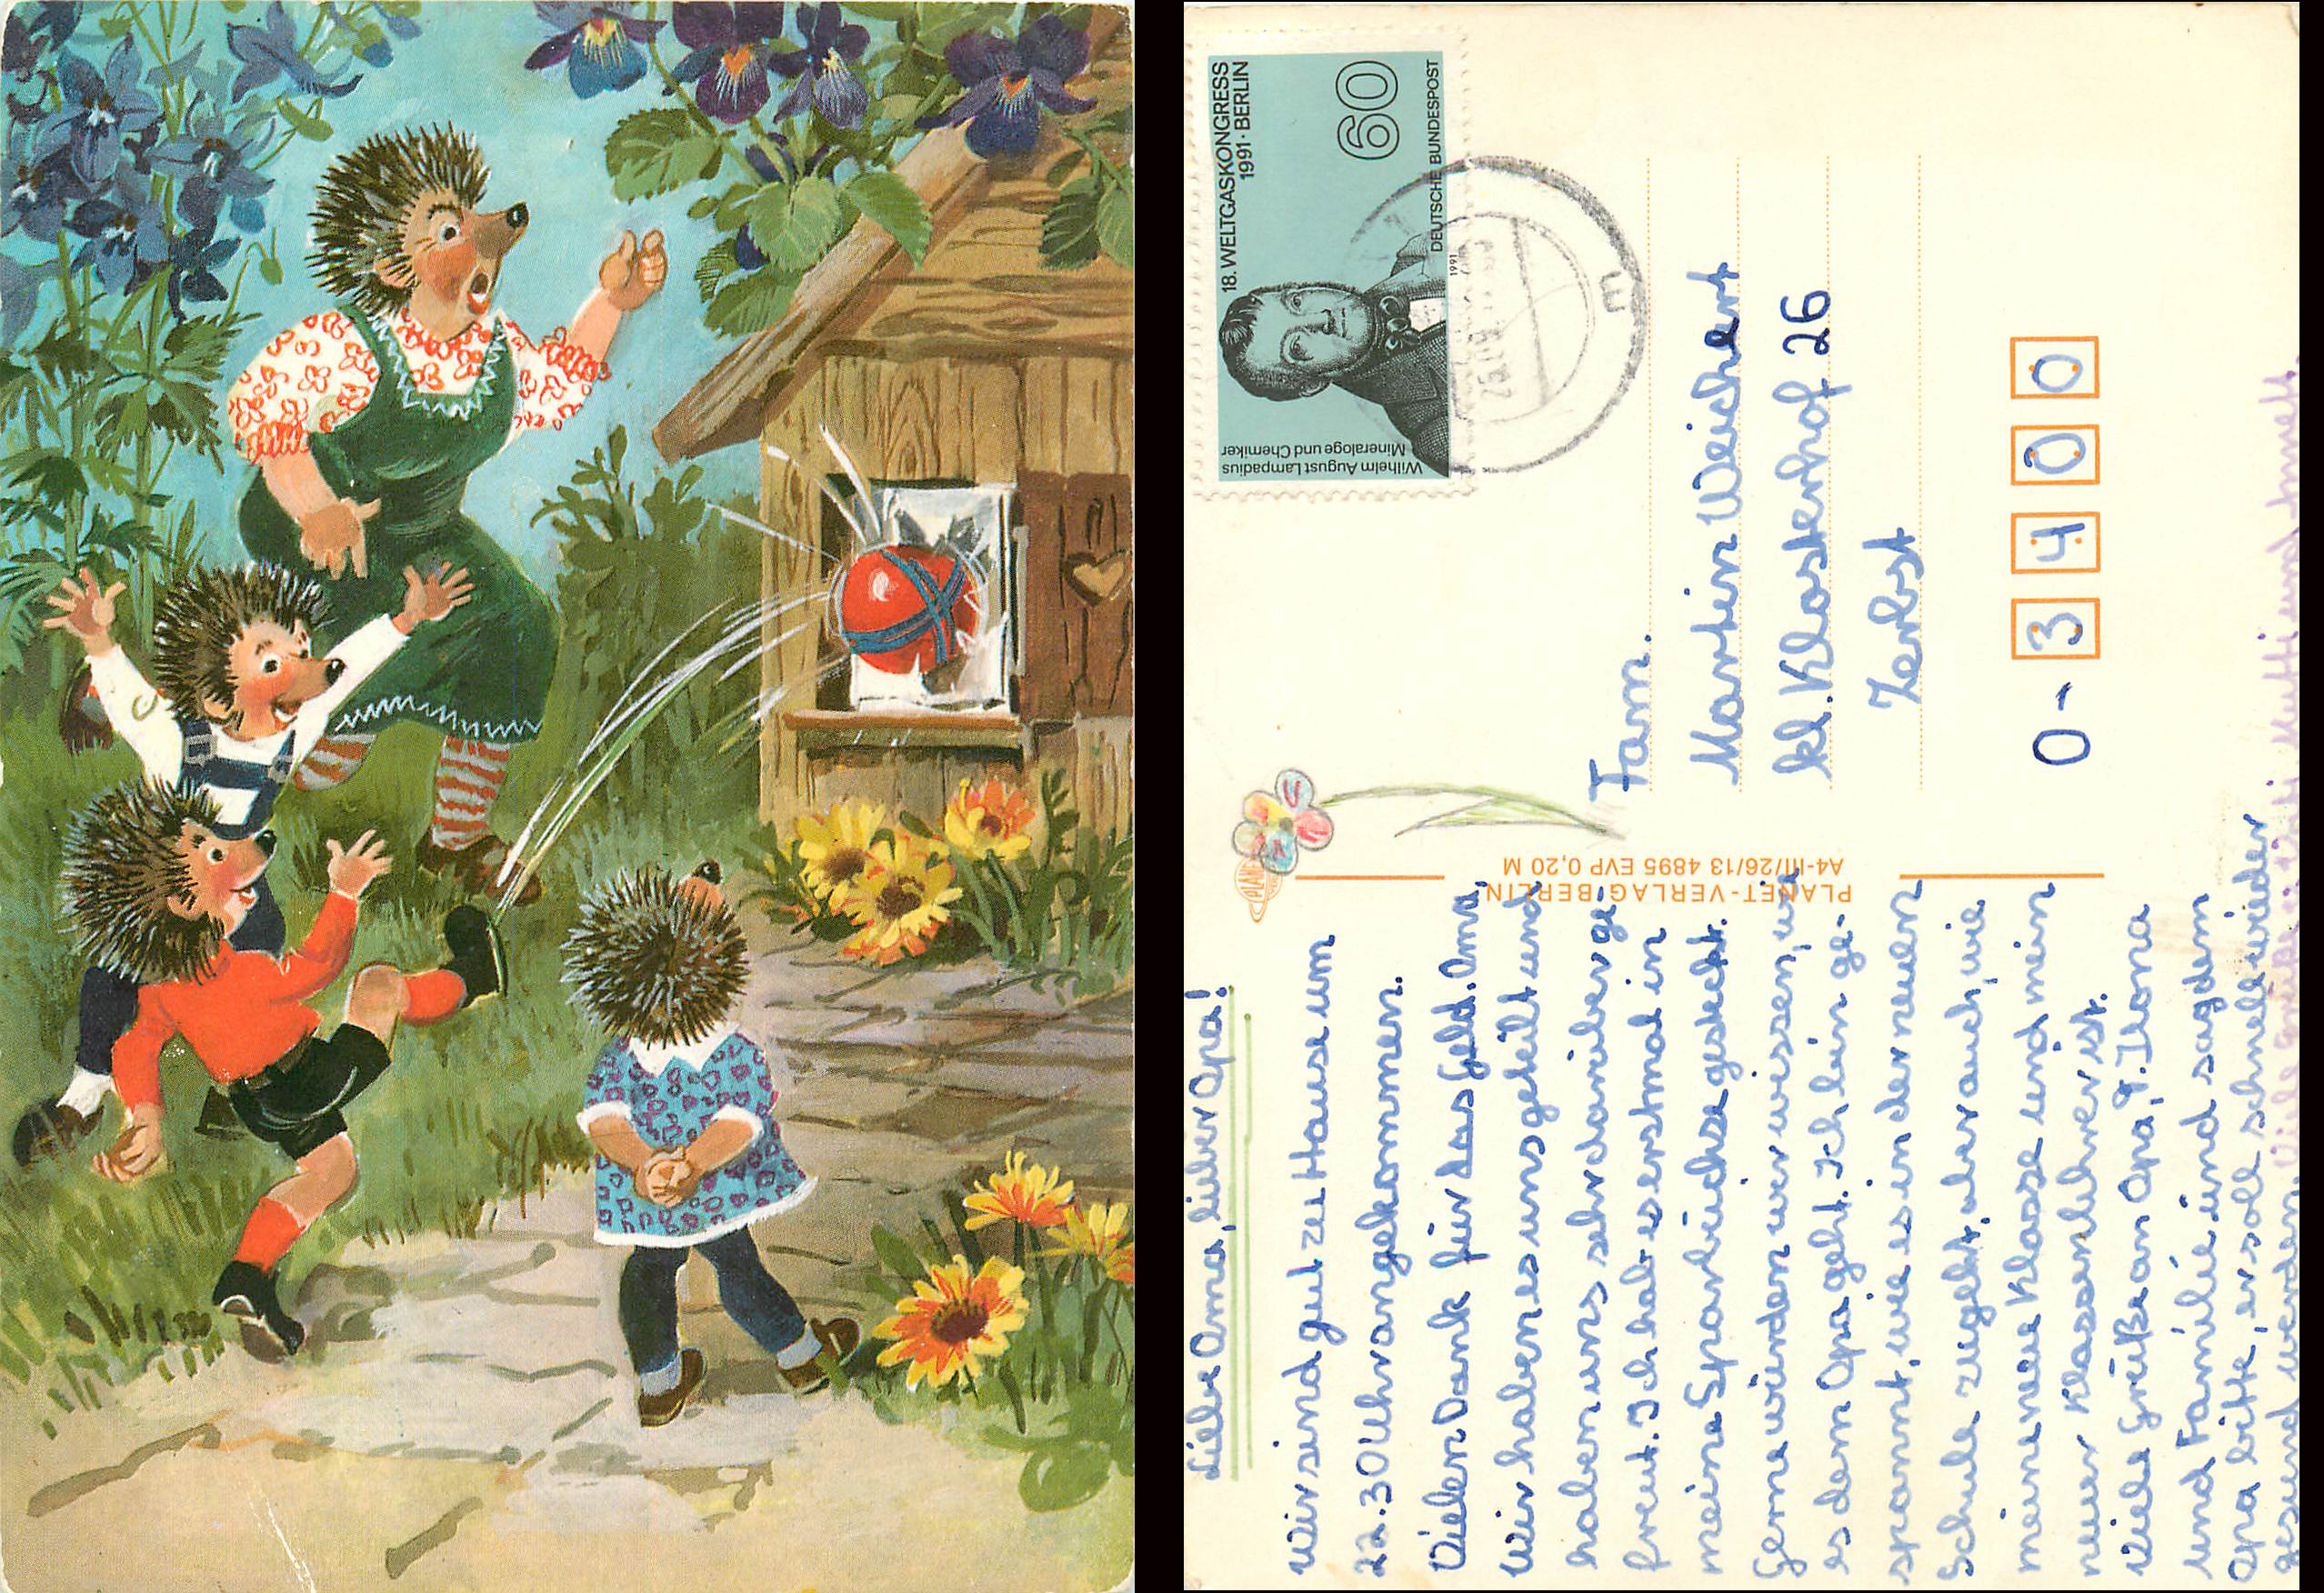 18. WELTGASKONGRESS
1991 · BERLIN
60
DEUTSCHE BUNDESPOST
1991
Wilhelm August Lampadius
Mineraloge und Chemiker
PLANET-VERLAG BERLIN
A4-III/26/13 4895 EVP 0,20 M
Liebe Oma, lieber Opa!
Wir sind gut zu Hause um
22.30 Uhr angekommen.
Vielen Dank für das Geld. Oma,
Wir haben es uns geteilt und
haben uns sehr darüber ge-
freut. Ich hab es erstmal in
meine Sparbüchse gesteckt.
Gerne würden wir wissen, wie
es dem Opa geht. Ich bin ge-
spannt, wie es in der neuen
Schule zugeht, aber auch, wie
meine neue Klasse und mein
neuer Klassenlehrer ist.
Viele Grüße an Opa, T. Ilona
und Familie und sag dem
Opa bitte, er soll schnell wieder
gesund werden. Viele Grüße Mutti und
Fam.
Martin Weichert
kl. Klosterhof 26
Zerbst
O-3400